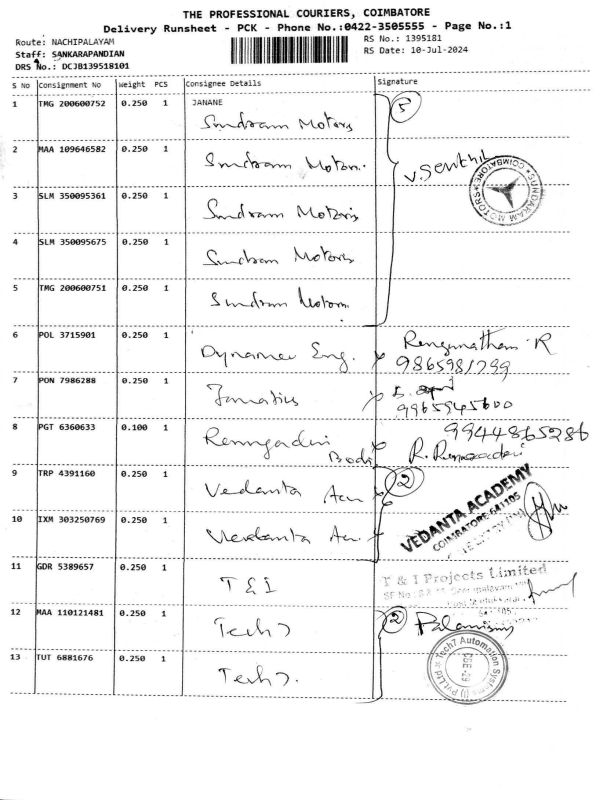 THE PROFESSIONAL COURIERS, COIMBATORE
Delivery Runsheet - PCK - Phone No.:0422-3505555 - Page No.:1
Route: NACHIPALAYAM
RS No.: 1395181
Staff: SANKARAPANDIAN
RS Date: 10-Jul-2024
DRS No.: DCJB139518101
S No Consignment No Weight PCS Consignee Details Signature
1 TMG 200600752 0.250 1 JANANE 5
Sundram Motors
2 MAA 109646582 0.250 1 Sundram Motors
V. Senthil
SUNDARAM MOTORS * COIMBATORE *
3 SLM 350095361 0.250 1
Sundram Motors
4 SLM 350095675 0.250 1
Sundram Motors
5 TMG 200600751 0.250 1
Sundram Motors
6 POL 3715901 0.250 1 Renganathan R
Dynamec Eng. 9865981799
7 PON 7986288 0.250 1
9965945600
8 PGT 6360633 0.100 1 9944865286
Bodi R.
9 TRP 4391160 0.250 1 2
Vedanta Acu
VEDANTA ACADEMY
COIMBATORE 641105
10 IXM 303250769 0.250 1
Vedanta Acu.
11 GDR 5389657 0.250 1
T & I
T & I Projects Limited
12 MAA 110121481 0.250 1 2
Tech 7 Palanisamy
13 TUT 6881676 0.250 1
Tech 7.
Tech7 Automation Systems (I) Pvt.Ltd
CBE-29